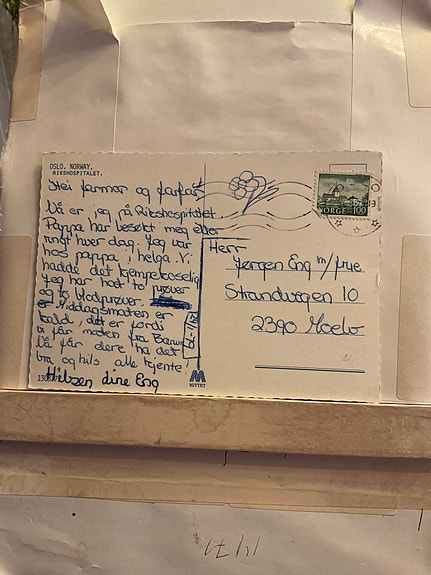 OSLO. NORWAY.
RIKSHOSPITALET.
Hei farmor og farfar
Nå er jeg på Rikshospitalet.
Pappa har besøkt meg eller
ringt hver dag. Jeg var
hos pappa i helga. Vi
hadde det kjempekoselig
Jeg har hatt to prøver
og to blodprøver.
er Middagsmaten er
kald, det er fordi
vi får maten fra
Nå får dere ha det
bra og hils alle kjente!
Hilsen Line Eng
Herr
Jørgen Eng m/frue
Strandvegen 10
2390 Moelv
NORGE 100
MITTET